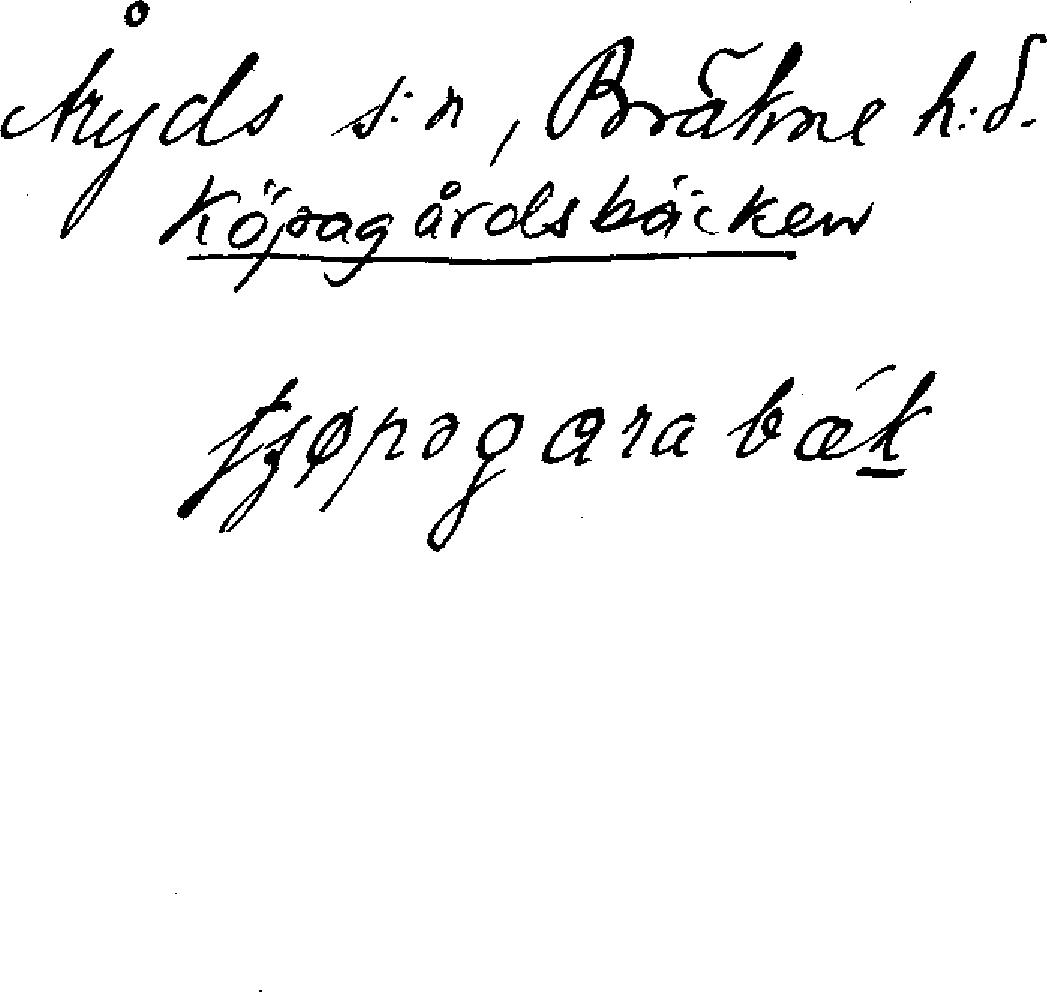 Åryds s:n, Bräkne h:d.
Köpagårdsbäcken
tʒøpəgarabǽk